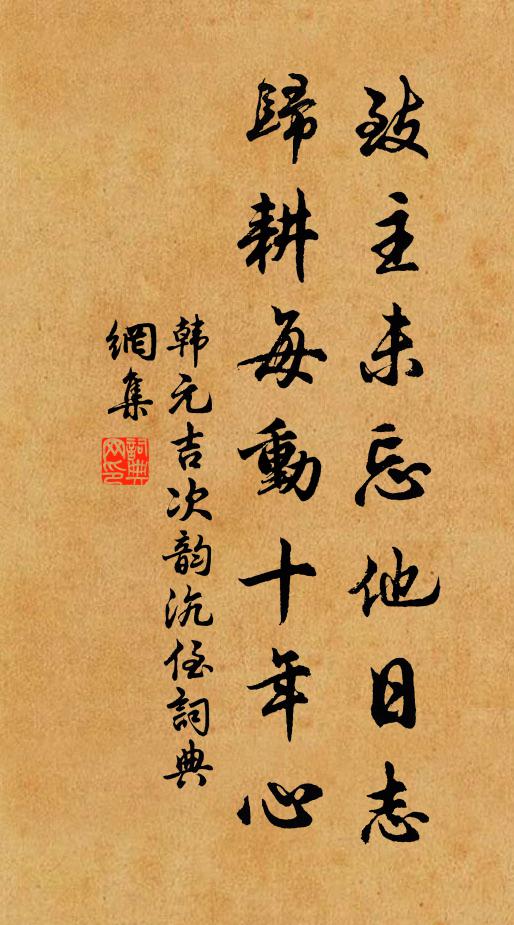 致主未忘他日志
歸耕每動十年心
韩元吉次韵沇侄詞典
網集
詞典网印